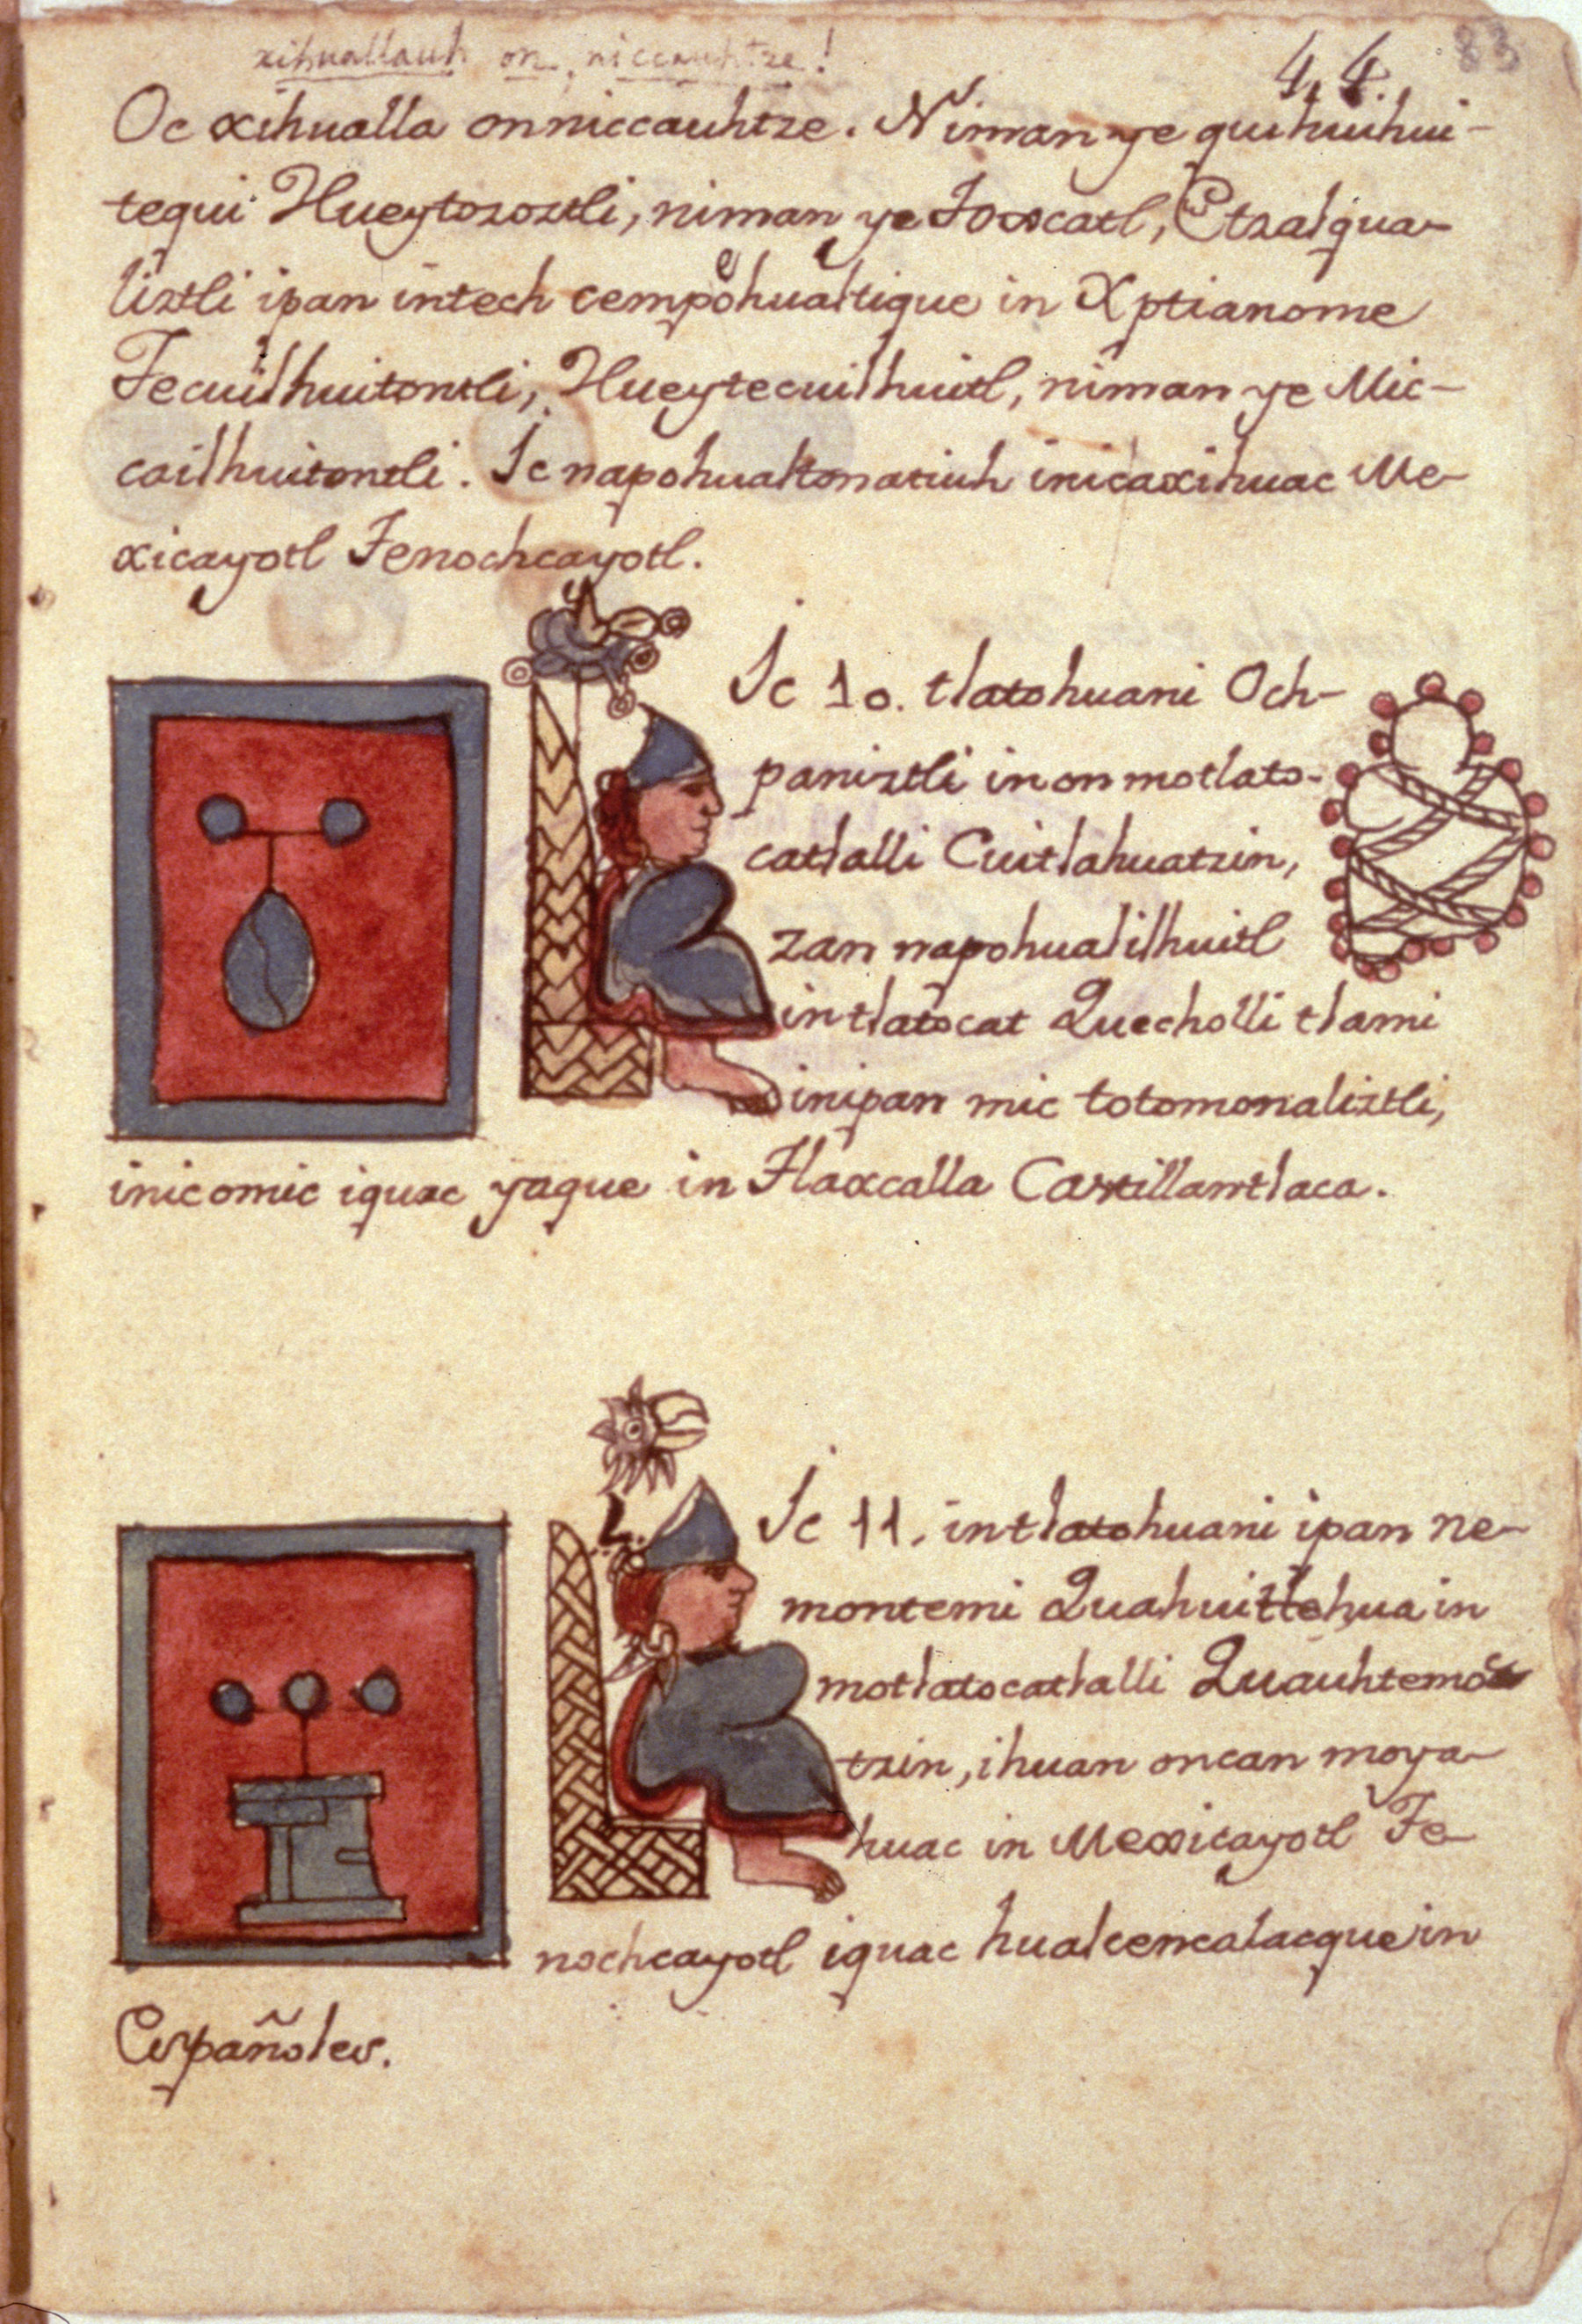 xihuallauh on, niccauhtze!
44. 83
Oc xihualla onniccauhtze. Niman ye quihuihui-
tequi Hueytozoztli, niman ye Toxcatl, Etzalqua-
liztli ipan intech cempohualtique in Xptianome
Tecuilhuitontli, Hueytecuilhuitl, niman ye Mic-
cailhuitontli. Ic napohualtonatiuh inicaxihuac Me-
xicayotl Tenochcayotl.
Ic 10. tlatohuani Och-
paniztli in onmotlato-
catlalli Cuitlahuatzin,
zan napohualilhuitl
intlatocat Quecholli tlami
inipan mic totomonaliztli,
inicomic iquac yaque in Tlaxcalla Caxtillantlaca.
Ic 11. intlatohuani ipan ne-
montemi Quahuitlehua in
motlatocatlalli Quauhtemoc
tzin, ihuan oncan moya-
huac in Mexicayotl Te-
nochcayotl iquac hualcencalacque in
Españoles.